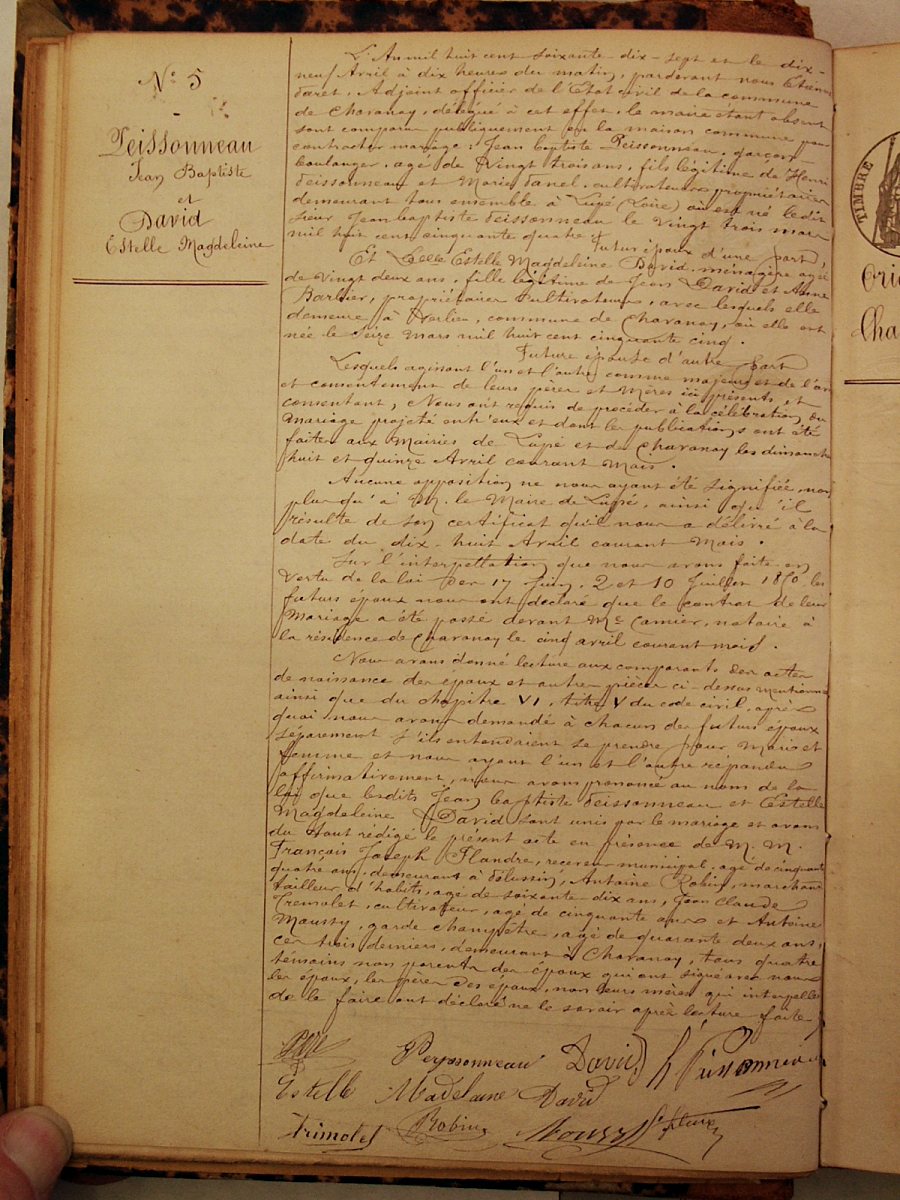 N° 5
Peissonneau
Jean Baptiste
et
David
Estelle Magdeleine
L'An mil huit cent soixante-dix-sept et le dix-
neuf Avril à dix heures du matin, pardevant nous Etienne
Paret, Adjoint officier de l'Etat civil de la commune
de Chavanay, délégué à cet effet, le maire étant absent
sont comparu publiquement en la maison commune pour
contracter mariage: Jean baptiste Peissonneau, garçon
boulanger, agé de Vingt trois ans, fils légitime de Henri
Peissonneau et Marie Panel, cultivateurs propriétaires
demeurant tous ensemble à Lupé (Loire) où est né ledit
sieur Jean baptiste Peissonneau le Vingt trois mars
mil huit cent cinquante quatre. Futur époux d'une part,
Et Delle Estelle Magdeleine David, ménagère agée
de Vingt deux ans, fille légitime de Jean David et Anne
Barbier, propriétaires Cultivateurs, avec lesquels elle
demeure à Verlieu, commune de Chavanay, où elle est
née le Seize Mars mil huit cent cinquante cinq.
Future épouse d'autre part
Lesquels agissant l'un et l'autre comme majeurs et de l'avis
et consentement de leurs pères et Mères ici présents et
consentant, Nous ont requis de procéder à la célébration du
Mariage projeté entr'eux et dont les publications ont été
faites aux Mairies de Lupé et de Chavanay les dimanches
huit et quinze Avril courant Mois.
Aucune opposition ne nous ayant été signifiée, non
plus qu'à M. le Maire de Lupé, ainsi qu'il
résulte de son certificat qu'il nous a délivré à la
date du dix-huit Avril courant Mois.
Sur l'interpellation que nous avons faite en
Vertu de la loi des 17 Juin, 2 et 10 Juillet 1850 les
futurs époux nous ont déclaré que le contrat de leur
Mariage a été passé devant Me Camier, notaire à
la résidence de Chavanay le cinq avril courant mois.
Nous avons donné lecture aux comparants des actes
de naissance des époux et autres pièces ci-dessus mentionnés
ainsi que du chapitre VI, titre V du code civil, après
quoi nous avons demandé à chacun des futurs époux
séparement s'ils entendaient se prendre pour Mari et
femme et nous ayant l'un et l'autre repondu
affirmativement, nous avons prononcé au nom de la
loi que lesdits Jean baptiste Peissonneau et Estelle
Magdeleine David sont unis par le mariage et avons
du tout rédigé le présent acte en présence de M.M.
Francois Joseph Flandre, receveur municipal, agé de cinquante
quatre ans, demeurant à Pélussin, Antoine Robin, marchand
tailleur d'habits, agé de soixante dix ans, Jean Claude
Tremolet, cultivateur, agé de cinquante ans et Antoine
Moussy, garde champêtre, agé de quarante deux ans,
ces trois derniers, demeurant à Chavanay, tous quatre
témoins non parents des époux qui ont signé avec nous
les époux, les pères des époux, non leurs mères qui interpellées
de le faire ont déclaré ne le savoir après lecture faite.
Peyssonneau David h Peissonneau
Estelle Madelaine David
Trimolet Robin Moussy
TIMBRE